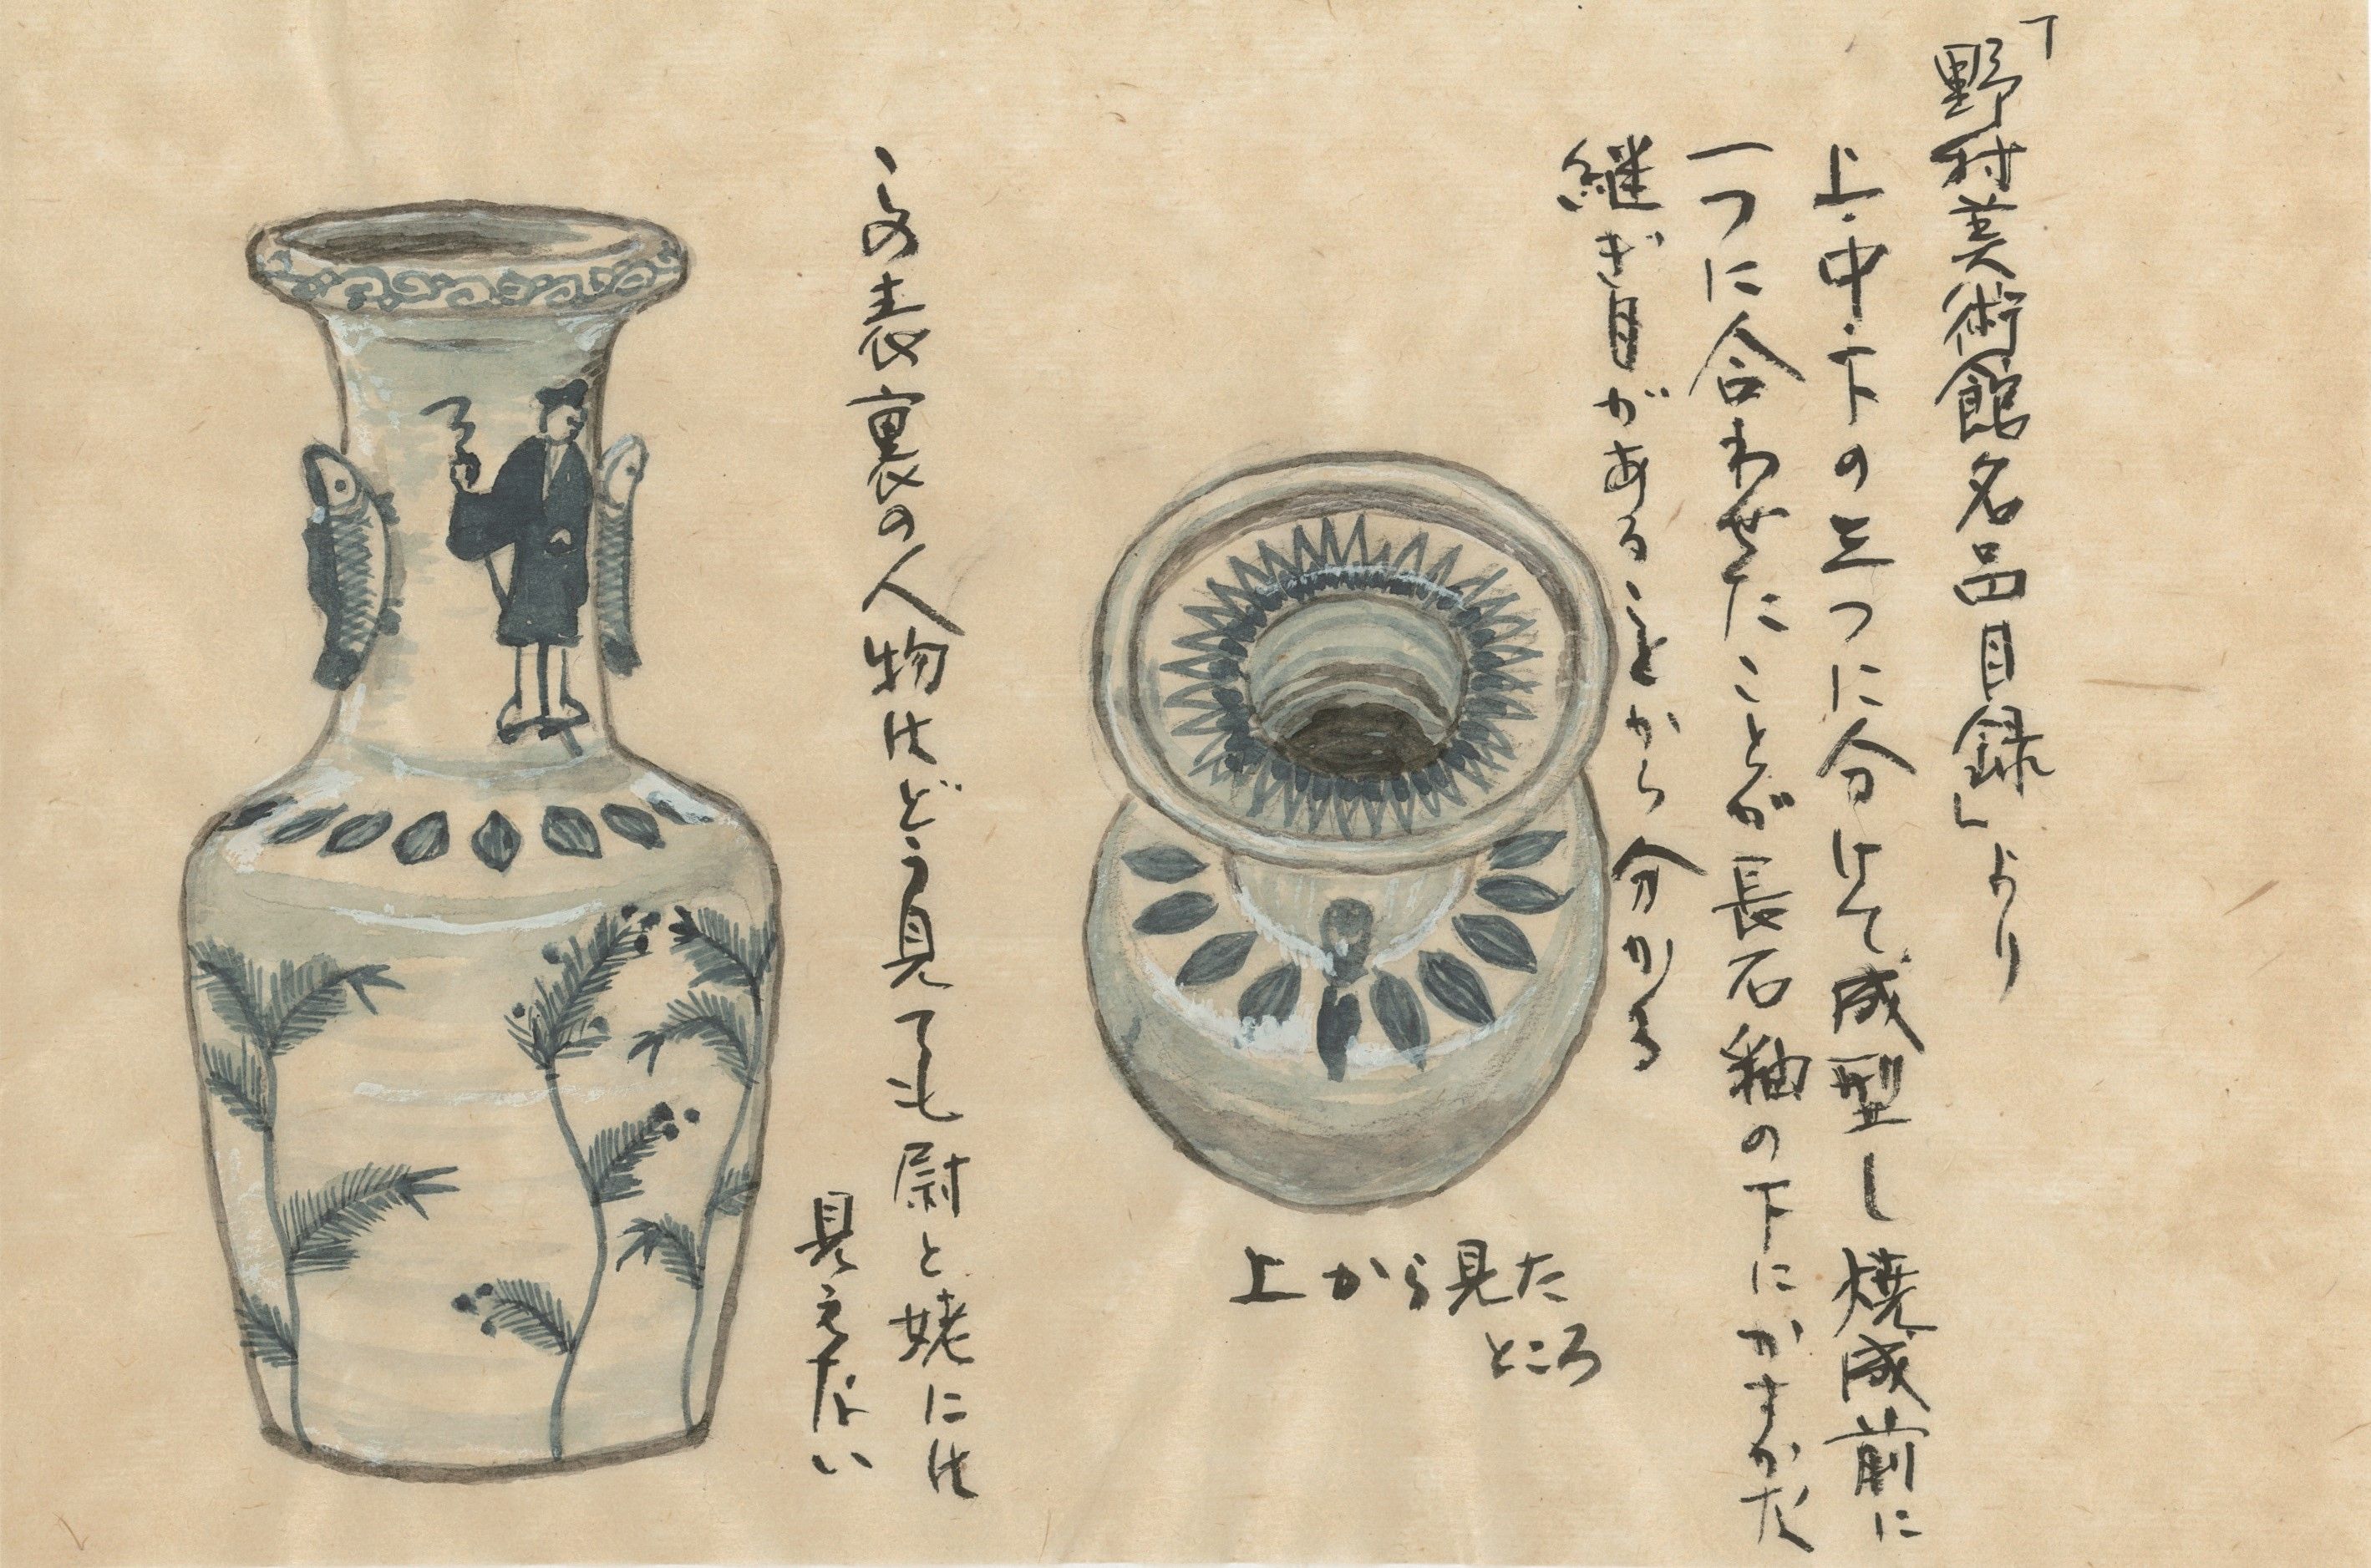 「野村美術館名品目録」より
上・中・下の三つに分けて成型し焼成前に
一つに合わせたことが長石釉の下にかすかだ
継ぎ目があることから分かる
上から見た
ところ
この表裏の人物はどう見ても尉と姥には
見えない